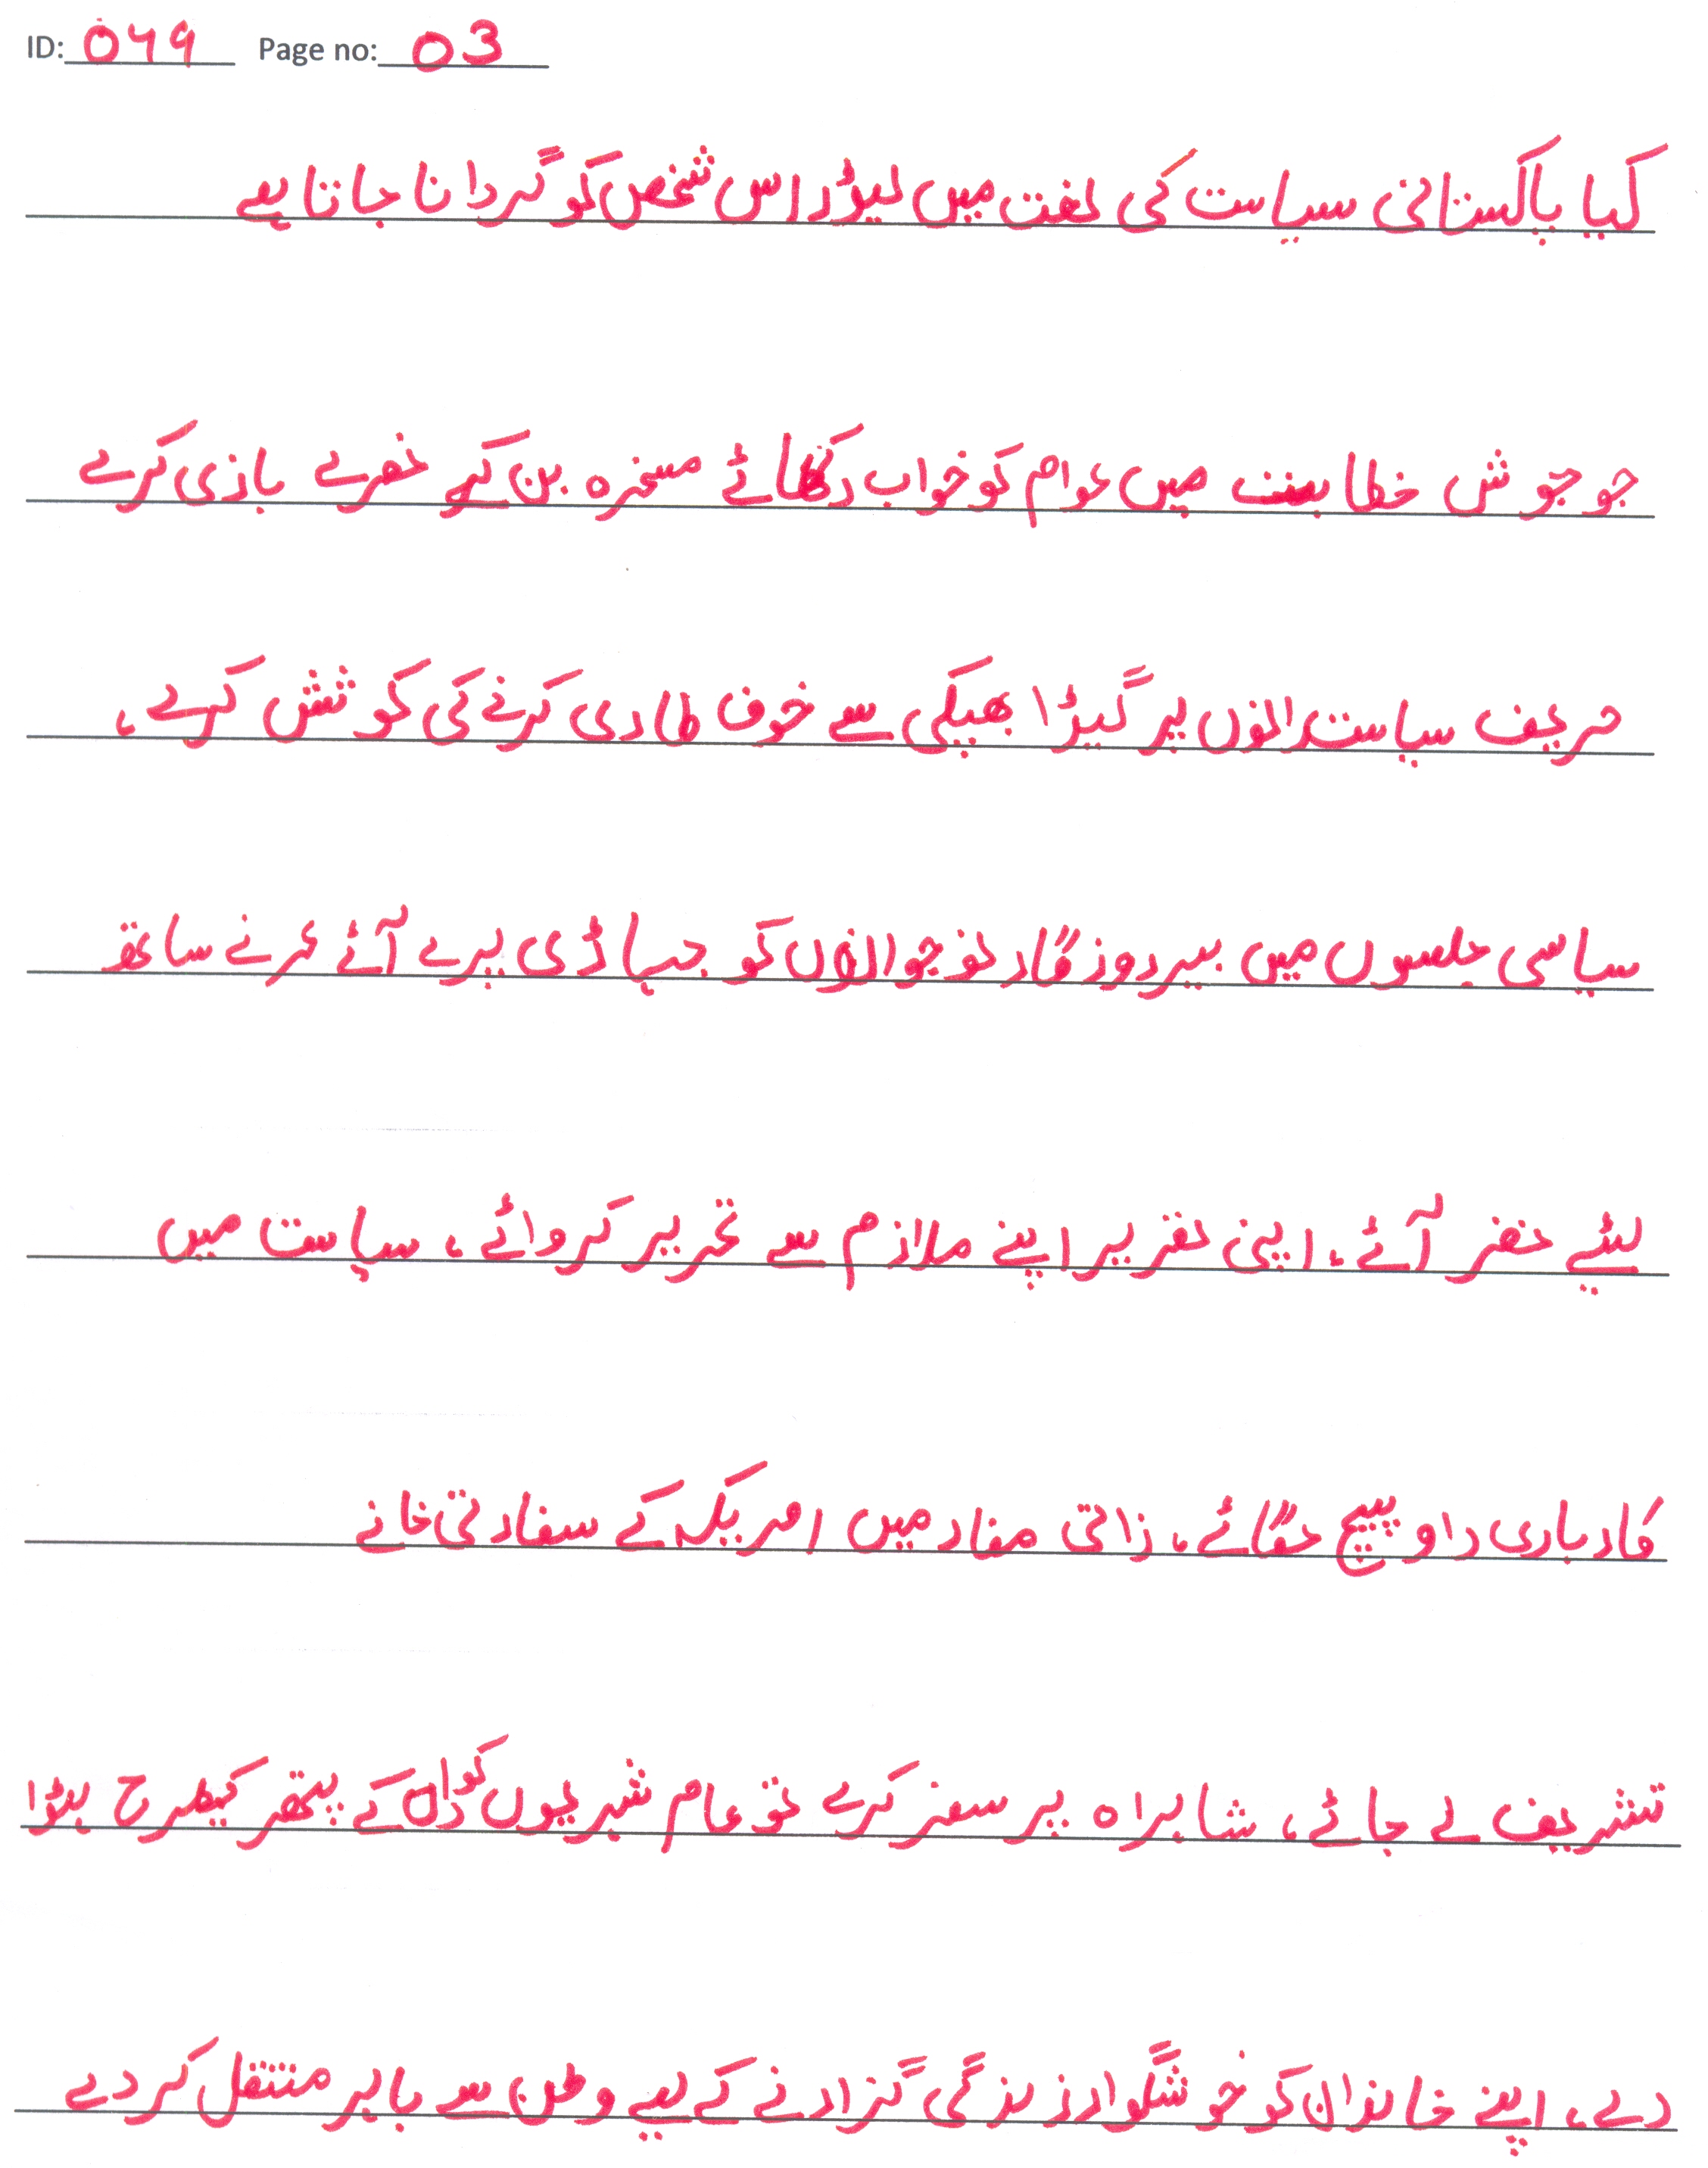 ID: 079 Page no: 03
کیا پاکستانی سیاست کی لغت میں لیڈر اس شخص کو گردانا جاتا ہے
جو جوش خطابت میں عوام کو خواب دکھائے مسخرہ بن کہ نعرے بازی کرے
حریف سیاستدانوں پر گیڈا بھبکی سے خوف طاری کرنے کی کوشش کرے،
سیاسی جلسوں میں بیروزگار نوجوانوں کو دیہاڈی پرے آئے کرنے ساتھ
لئے نظر آئے، اپنی تقریر اپنے ملازم سے تحریر کروائے، سیاست میں
کارباری داو پیچ لگائے، ذاتی مفاد میں امریکہ کے سفارتی خانے
تشریف لے جائے، شاہراہ پر سفر کرے تو عام شہریوں کو ان کے پتھر کیطرح ہٹوا
دے، اپنے خاندان کو خوشگوار زندگی گزارنے کے لیے وطن سے باہر منتقل کر دے